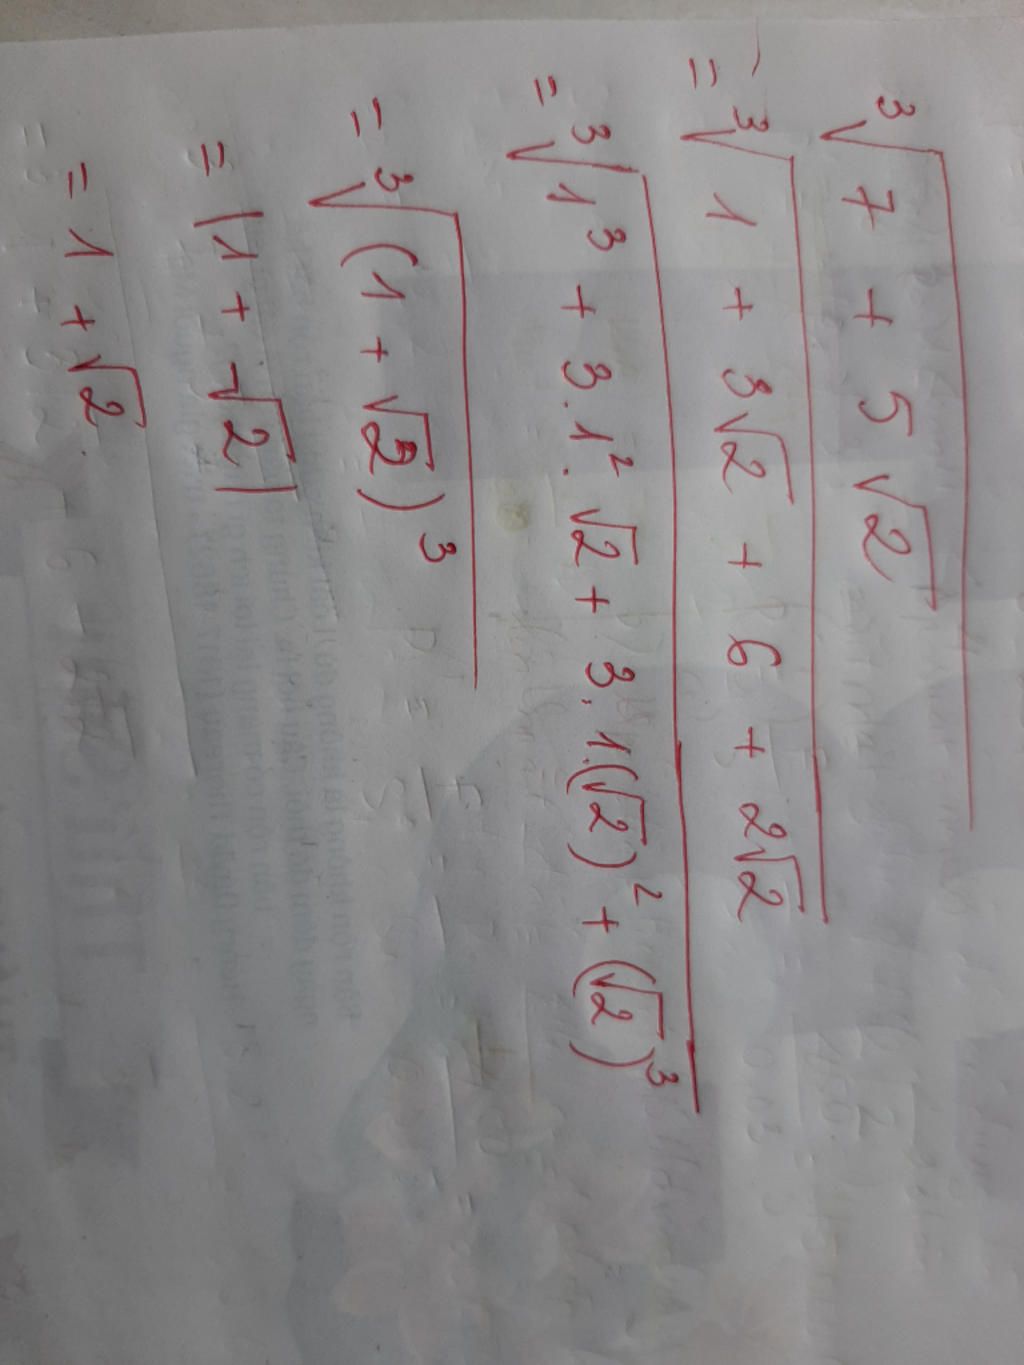 ∛(7 + 5√2)
= ∛(1 + 3√2 + 6 + 2√2)
= ∛(1³ + 3.1².√2 + 3.1.(√2)² + (√2)³)
= ∛((1 + √2)³)
= |1 + √2|
= 1 + √2.